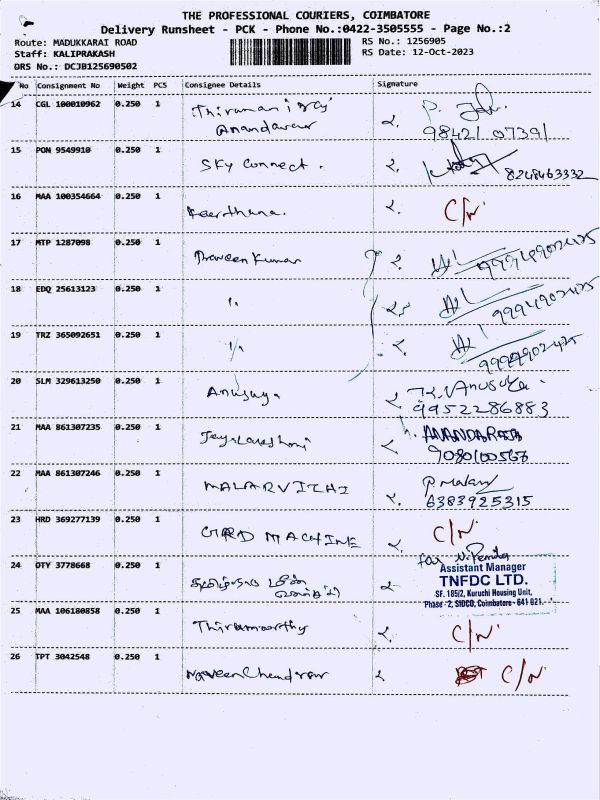 THE PROFESSIONAL COURIERS, COIMBATORE
Delivery Runsheet - PCK - Phone No.:0422-3505555 - Page No.:2
Route: MADUKKARAI ROAD
RS No.: 1256905
Staff: KALIPRAKASH
RS Date: 12-Oct-2023
DRS No.: DCJB125690502
No Consignment No Weight PCS Consignee Details Signature
14 CGL 100010962 0.250 1
98421 07391
15 PON 9549910 0.250 1 Sky Connect.
8248463332
16 MAA 100354664 0.250 1 Keerthana. C/N
17 MTP 1287098 0.250 1 Praveen Kumar
18 EDQ 25613123 0.250 1
19 TRZ 365092651 0.250 1
20 SLM 329613250 0.250 1 Anusuya
9952286883
21 MAA 861307235 0.250 1 Jeyalakshmi ANANDARAJA
9080100568
22 MAA 861307246 0.250 1 MALARVIZHI P Malar
6383925315
23 HRD 369277139 0.250 1 CARD MACHINE C/N
24 OTY 3778668 0.250 1 for
Assistant Manager
TNFDC LTD.
SF. 185/2, Kuruchi Housing Unit,
Phase -2, SIDCO, Coimbatore - 641 021.
25 MAA 106180858 0.250 1 Thiramoorthy C/N
26 TPT 3042548 0.250 1 Naveen Chendran C/N